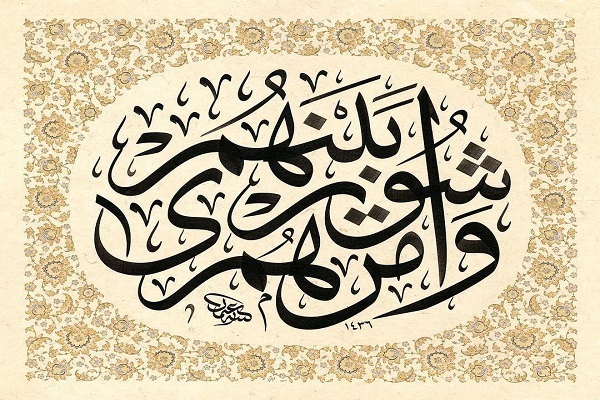 وامرهم شورى بينهم
١٤٣٦